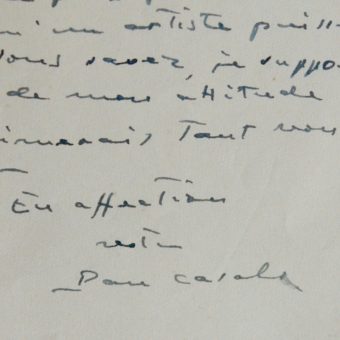 qu'un artiste puiss
Vous savez, je suppo
de mon attitude
imerais tant vous
En affection
votre
Pau Casals